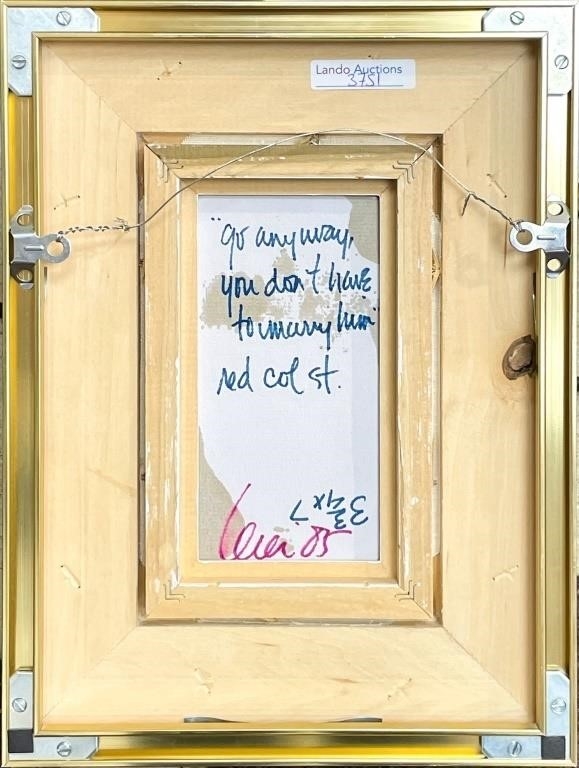 Lando Auctions
3751
"go anyway,
you don't have
to marry him"
red col st.
3 3/4 x 7
85